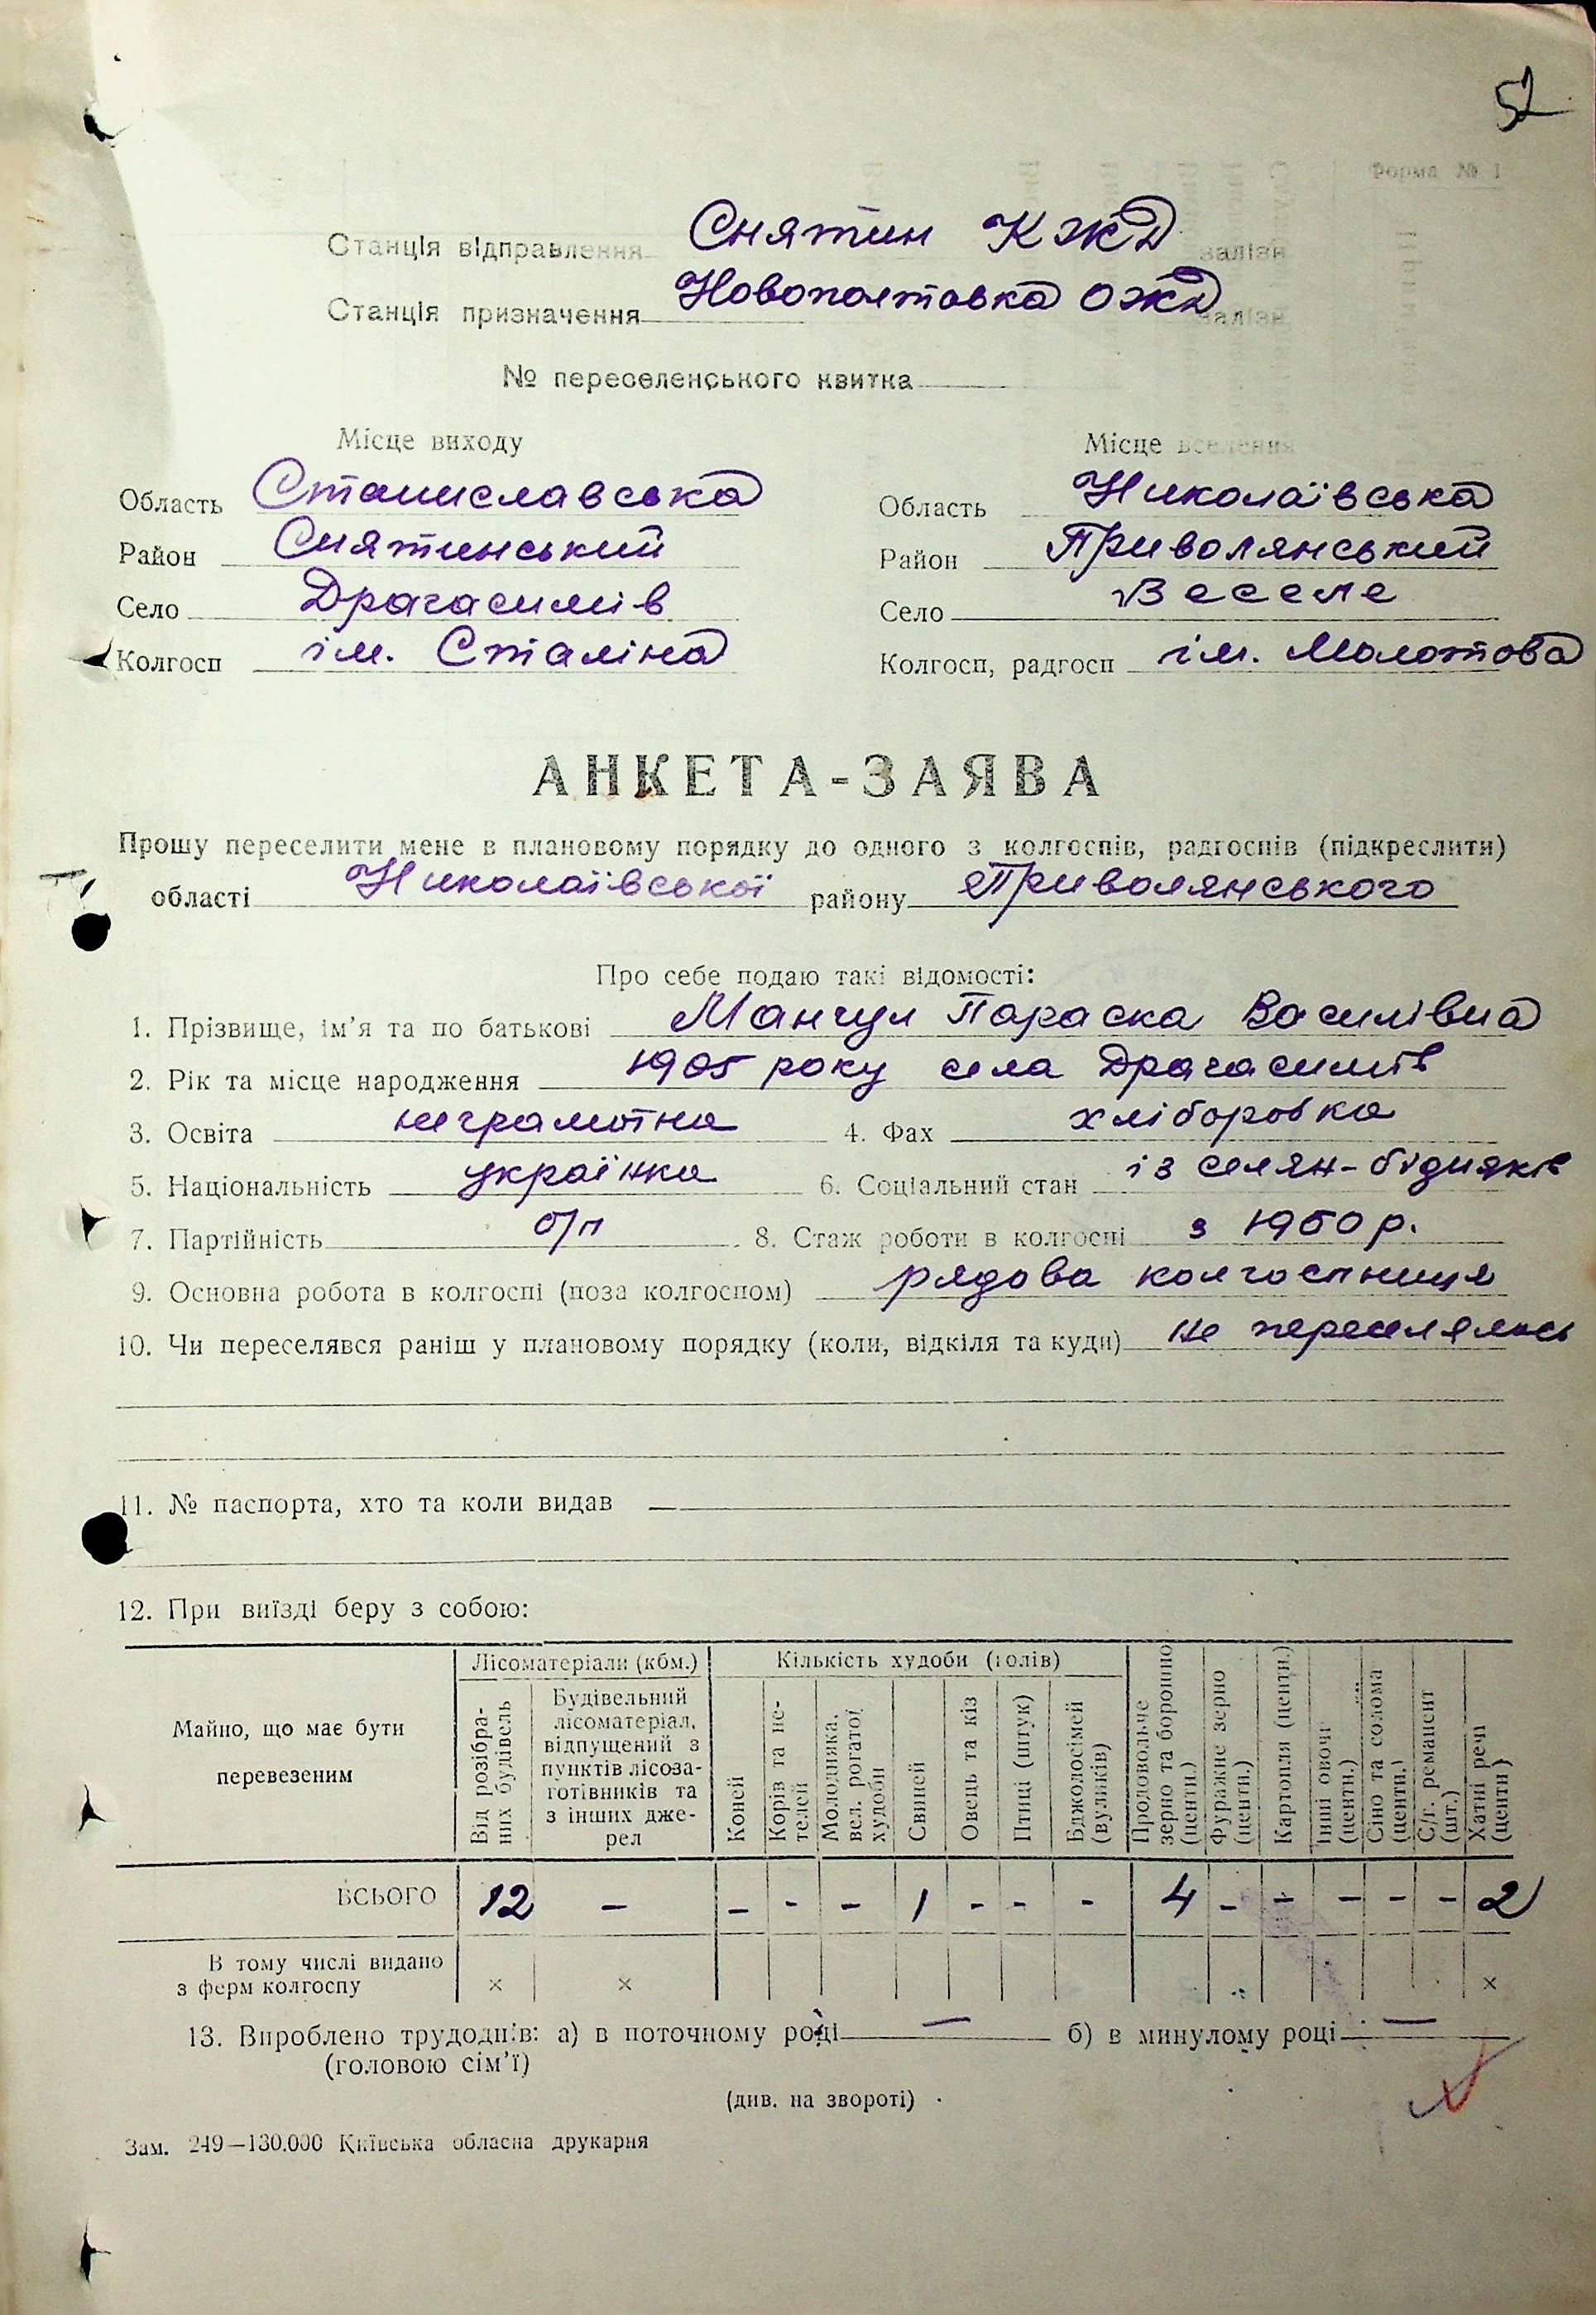 52
Форма № 1
Станція відправлення Снятин КЖД залізн.
Станція призначення Новополтавка ОЖД залізн.
№ переселенського квитка
Місце виходу
Місце вселення
Область Станиславська
Область Николаївська
Район Снятинський
Район Привольянський
Село Драгасимів
Село Веселе
Колгосп ім. Сталіна
Колгосп, радгосп ім. Молотова
АНКЕТА-ЗАЯВА
Прошу переселити мене в плановому порядку до одного з колгоспів, радгоспів (підкреслити)
області Николаївської району Приволянського
Про себе подаю такі відомості:
1. Прізвище, ім'я та по батькові Манчул Параска Василівна
2. Рік та місце народження 1905 року села Драгасимів
3. Освіта неграмотна 4. Фах хліборобка
5. Національність українка 6. Соціальний стан із селян-бідняків
7. Партійність б/п 8. Стаж роботи в колгоспі з 1950 р.
9. Основна робота в колгоспі (поза колгоспом) рядова колгоспниця
10. Чи переселявся раніш у плановому порядку (коли, відкіля та куди) не переселялась
11. № паспорта, хто та коли видав
12. При виїзді беру з собою:
Майно, що має бути перевезеним
Лісоматеріали (кбм.)
Від розібраних будівель
Будівельний лісоматеріал, відпущений з пунктів лісозаготівників та з інших джерел
Кількість худоби (голів)
Коней
Корів та нетелей
Молодняка, вел. рогатої худоби
Свиней
Овець та кіз
Птиці (штук)
Бджолосімей (вуликів)
Продовольче зерно та борошно (центн.)
Фуражне зерно (центн.)
Картопля (центн.)
Інші овочі (центн.)
Сіно та солома (центн.)
С/г. реманент (шт.)
Хатні речі (центн)
ВСЬОГО 12 – – – – 1 – – – 4 – – – – – 2
В тому числі видано з ферм колгоспу × × ×
13. Вироблено трудоднів: а) в поточному році — б) в минулому році —
(головою сім'ї)
(див. на звороті)
Зам. 249—130.000 Київська обласна друкарня